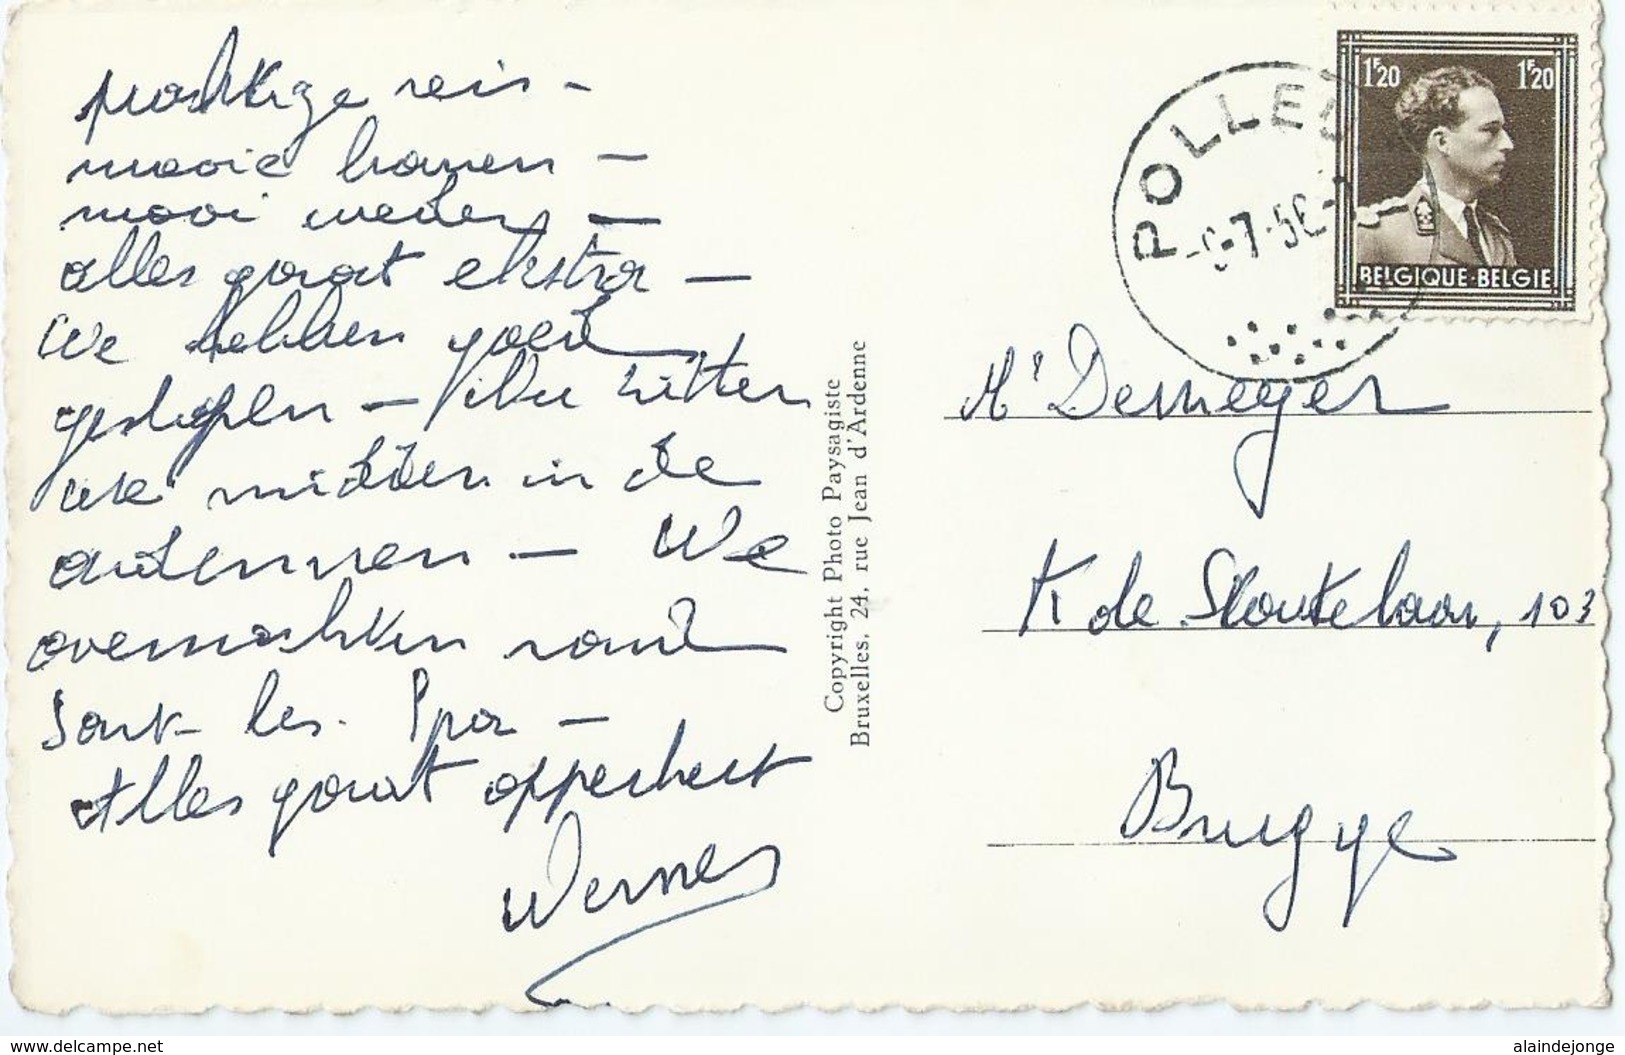 prachtige reis -
mooie banen -
mooi weder -
alles gaat ekstra -
We hebben goed
geslapen - Nu zitten
we midden in de
ardennen - We
overnachten rond
Sart-les-Spa -
Alles gaat opperbest
Werner
Copyright Photo Paysagiste
Bruxelles, 24, rue Jean d'Ardenne
POLLEU
-7-56-
1F20 1F20
BELGIQUE-BELGIE
Mr Demeyer
K de Sloutelaar, 103
Brugge
www.delcampe.net
alaindejonge